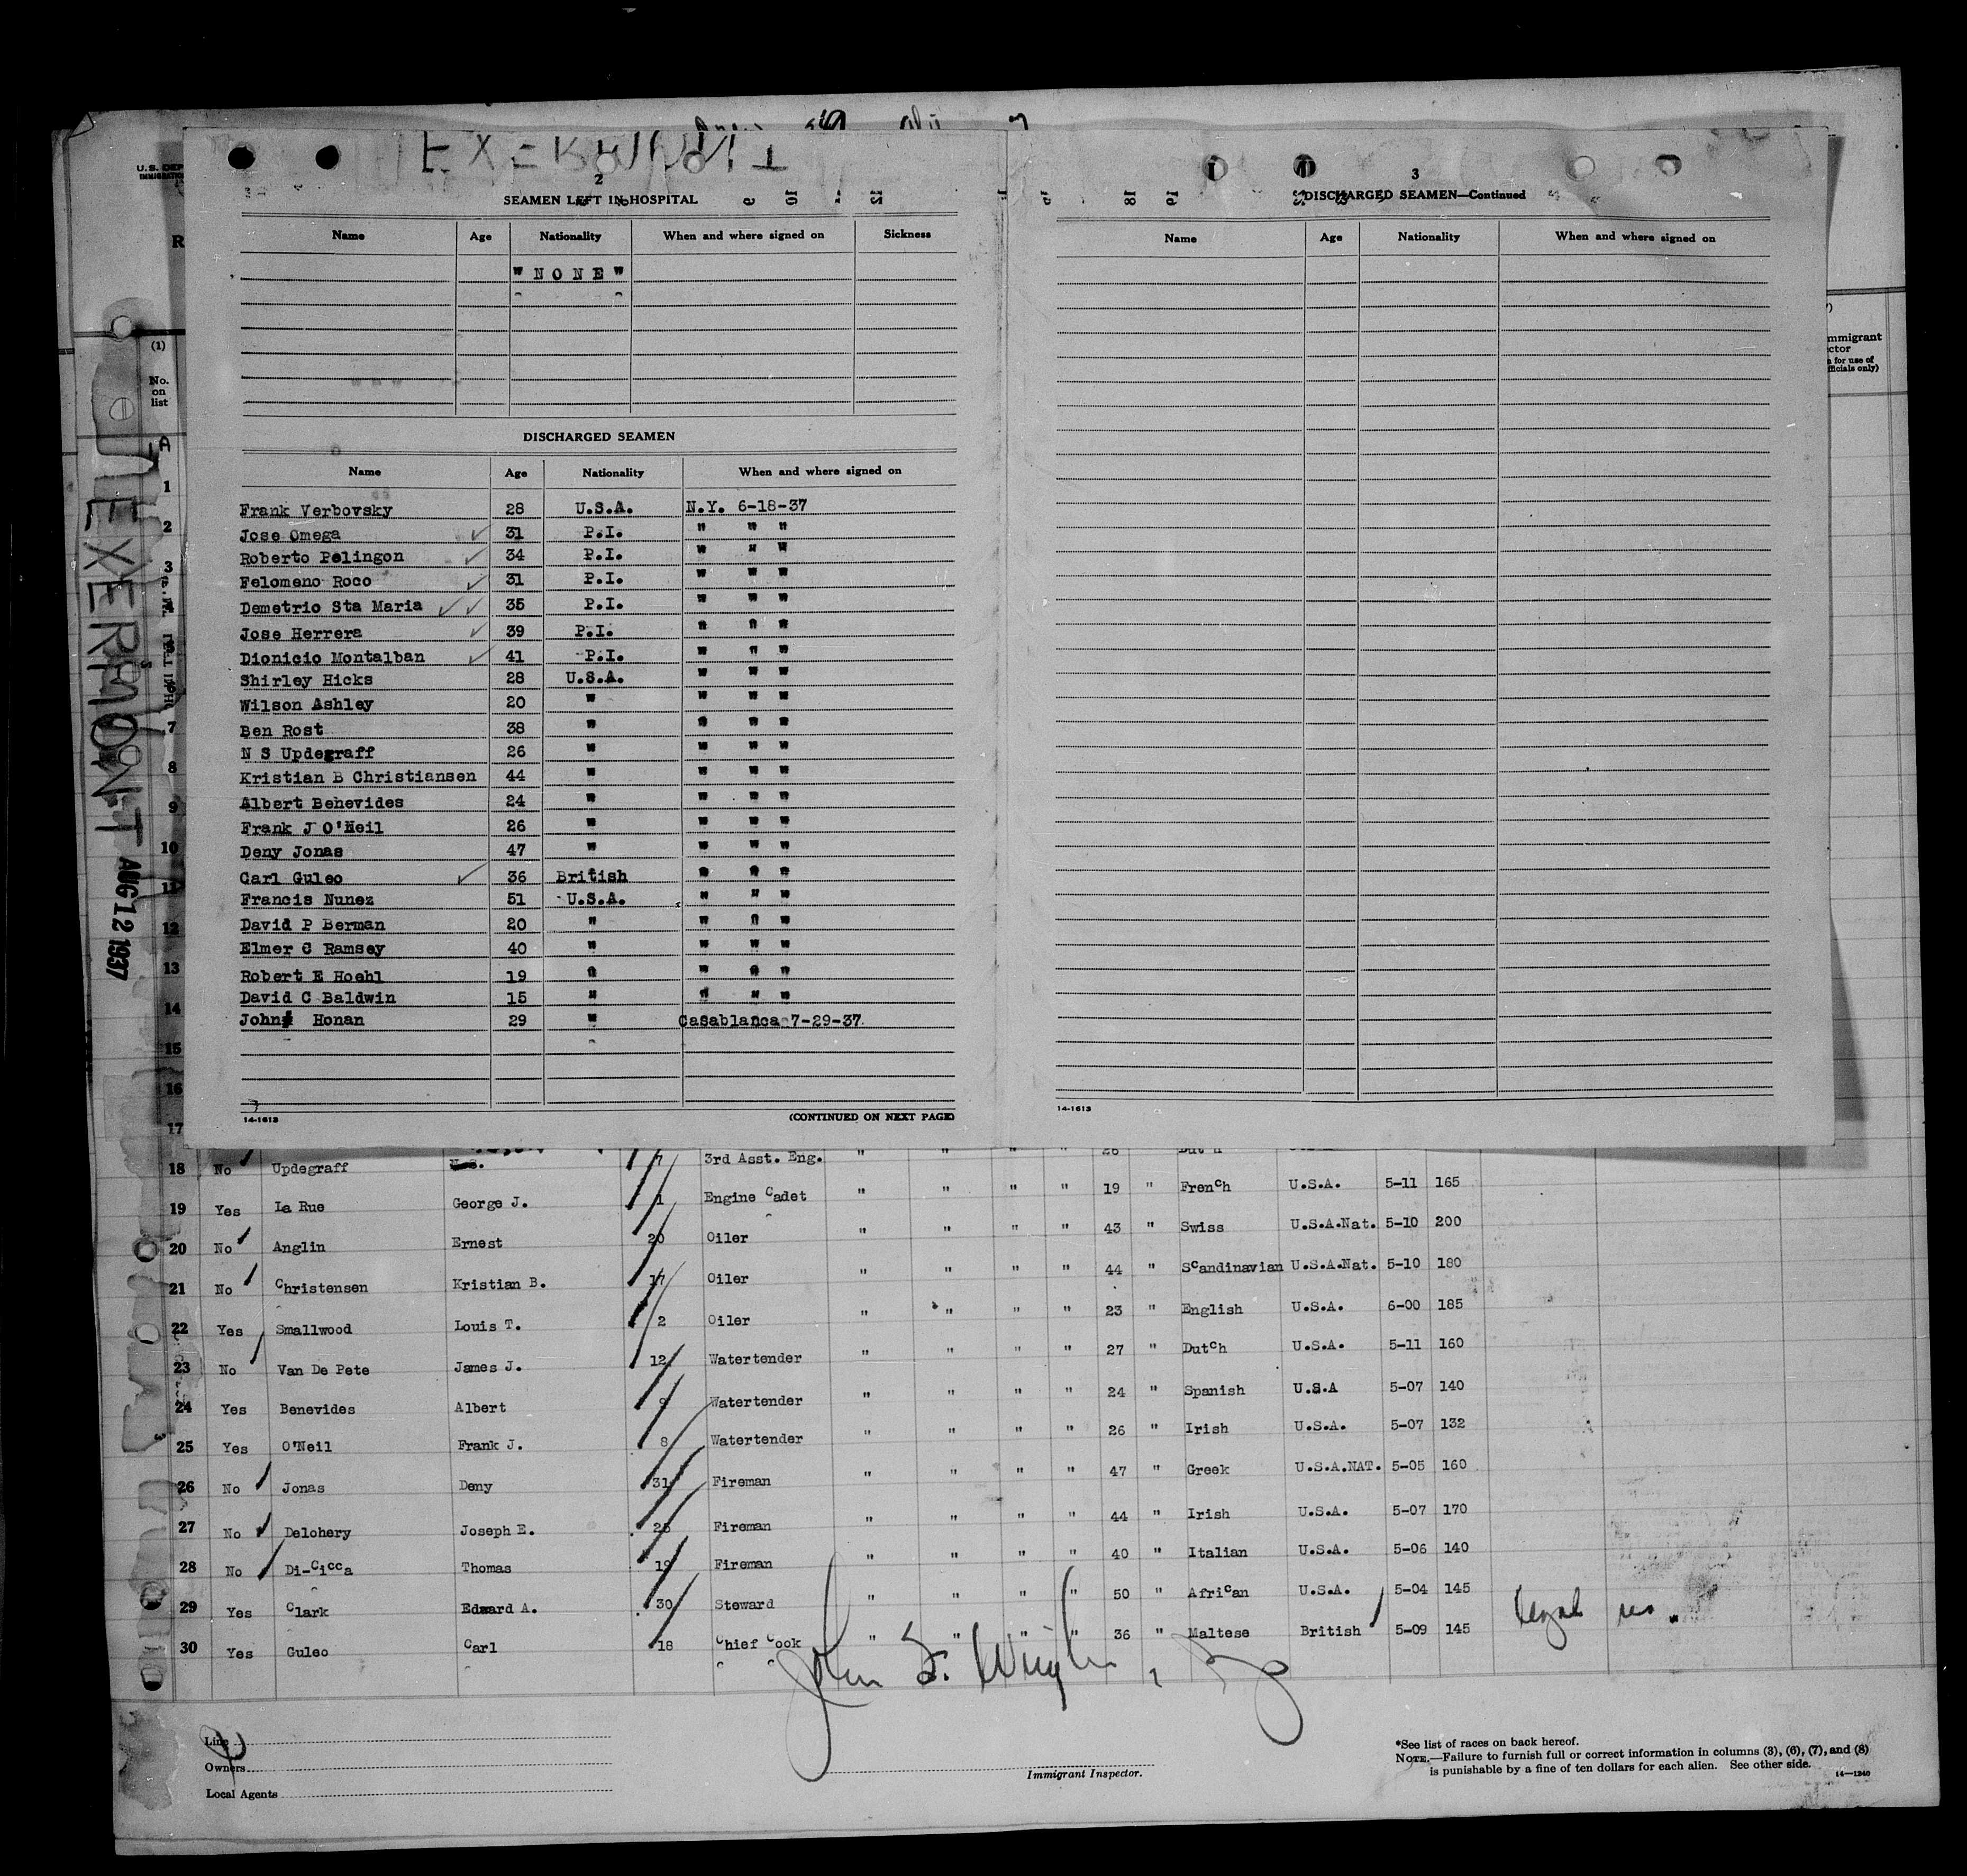 U.S. DEP
IMMIGRATIO
R
(1)
No.
on
list
EXERMONT
AUG 12 1937
A
1
2
3
7
8
9
10
11
12
13
14
15
16
17
2
SEAMEN LEFT IN HOSPITAL
Name Age Nationality When and where signed on Sickness
"NONE"
DISCHARGED SEAMEN
Name Age Nationality When and where signed on
Frank Verbovsky 28 U.S.A. N.Y. 6-18-37
Jose Omega 31 P.I. " " "
Roberto Pelingon 34 P.I. " " "
Felomeno Roco 31 P.I. " " "
Demetrio Sta Maria 35 P.I. " " "
Jose Herrera 39 P.I. " " "
Dionicio Montalban 41 P.I. " " "
Shirley Hicks 28 U.S.A. " " "
Wilson Ashley 20 " " " "
Ben Rost 38 " " " "
N S Updegraff 26 " " " "
Kristian B Christiansen 44 " " " "
Albert Benevides 24 " " " "
Frank J O'Neil 26 " " " "
Deny Jonas 47 " " " "
Carl Guleo 36 British " " "
Francis Nunez 51 U.S.A. " " "
David P Berman 20 " " " "
Elmer C Ramsey 40 " " " "
Robert E Hoehl 19 " " " "
David C Baldwin 15 " " " "
John Honan 29 " Casablanca 7-29-37
14-1613 (CONTINUED ON NEXT PAGE)
3
DISCHARGED SEAMEN—Continued
Name Age Nationality When and where signed on
14-1613
mmigrant
ctor
for use of
fficials only)
18 No Updegraff N.S. 7 3rd Asst. Eng. " " " " 26 Dutch
19 Yes La Rue George J. 1 Engine Cadet " " " " 19 " French U.S.A. 5-11 165
20 No Anglin Ernest 20 Oiler " " " " 43 " Swiss U.S.A.Nat. 5-10 200
21 No Christensen Kristian B. 17 Oiler " " " " 44 " Scandinavian U.S.A.Nat. 5-10 180
22 Yes Smallwood Louis T. 2 Oiler " " " " 23 " English U.S.A. 6-00 185
23 No Van De Pete James J. 12 Watertender " " " " 27 " Dutch U.S.A. 5-11 160
24 Yes Benevides Albert 9 Watertender " " " " 24 " Spanish U.S.A 5-07 140
25 Yes O'Neil Frank J. 8 Watertender " " " " 26 " Irish U.S.A. 5-07 132
26 No Jonas Deny 31 Fireman " " " " 47 " Greek U.S.A.NAT. 5-05 160
27 No Delohery Joseph E. 25 Fireman " " " " 44 " Irish U.S.A. 5-07 170
28 No Di-Cicca Thomas 19 Fireman " " " " 40 " Italian U.S.A. 5-06 140
29 Yes Clark Edward A. 30 Steward " " " " 50 " African U.S.A. 5-04 145
30 Yes Guleo Carl 18 Chief Cook " " " " 36 " Maltese British 5-09 145 legal res.
John S. Wright
Line
Owners
Local Agents
Immigrant Inspector.
*See list of races on back hereof.
NOTE.—Failure to furnish full or correct information in columns (3), (6), (7), and (8)
is punishable by a fine of ten dollars for each alien. See other side.
14—1240